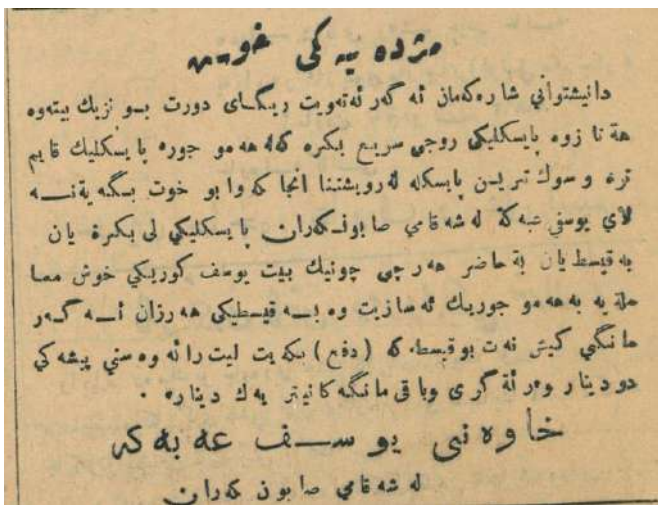 مژده یه کی خوش
دانیشتوانی شاره کەمان ئه گەر ئەتەویت ریگـای دورت بـو نزیك بیتەوه
هة تا زوه پایسکلیکی روجی سریع بکره کەله هه مو جوره پا یسکلیك قایم
تره و سوك تریـن پایسکله لەرویشتنا انجا کە وا بو خوت بگە یەنــه
لای یوسفی عبه کة له شه قامی صابونـکەران پا یسکلیکی لی بکرة یان
به قیسط یان بة حاضر هه رچی چونیك بیت یوسف کوریکی خوش معـا
ملة یه به هه مو جوریك ئه سازیت وه بــه قیسطیکی هه رزان ئــه گـەر
ما نگی کیش نەت بو قیسطه کە (دفع) بکەیت لیت رائه وه ستی پیشه کی
دو دینار وەر ئة گری وباقی مانگه کانیتر یەك دیناره .
خاوه نی یو ســف عه به که
له شه قامی صابون کەران